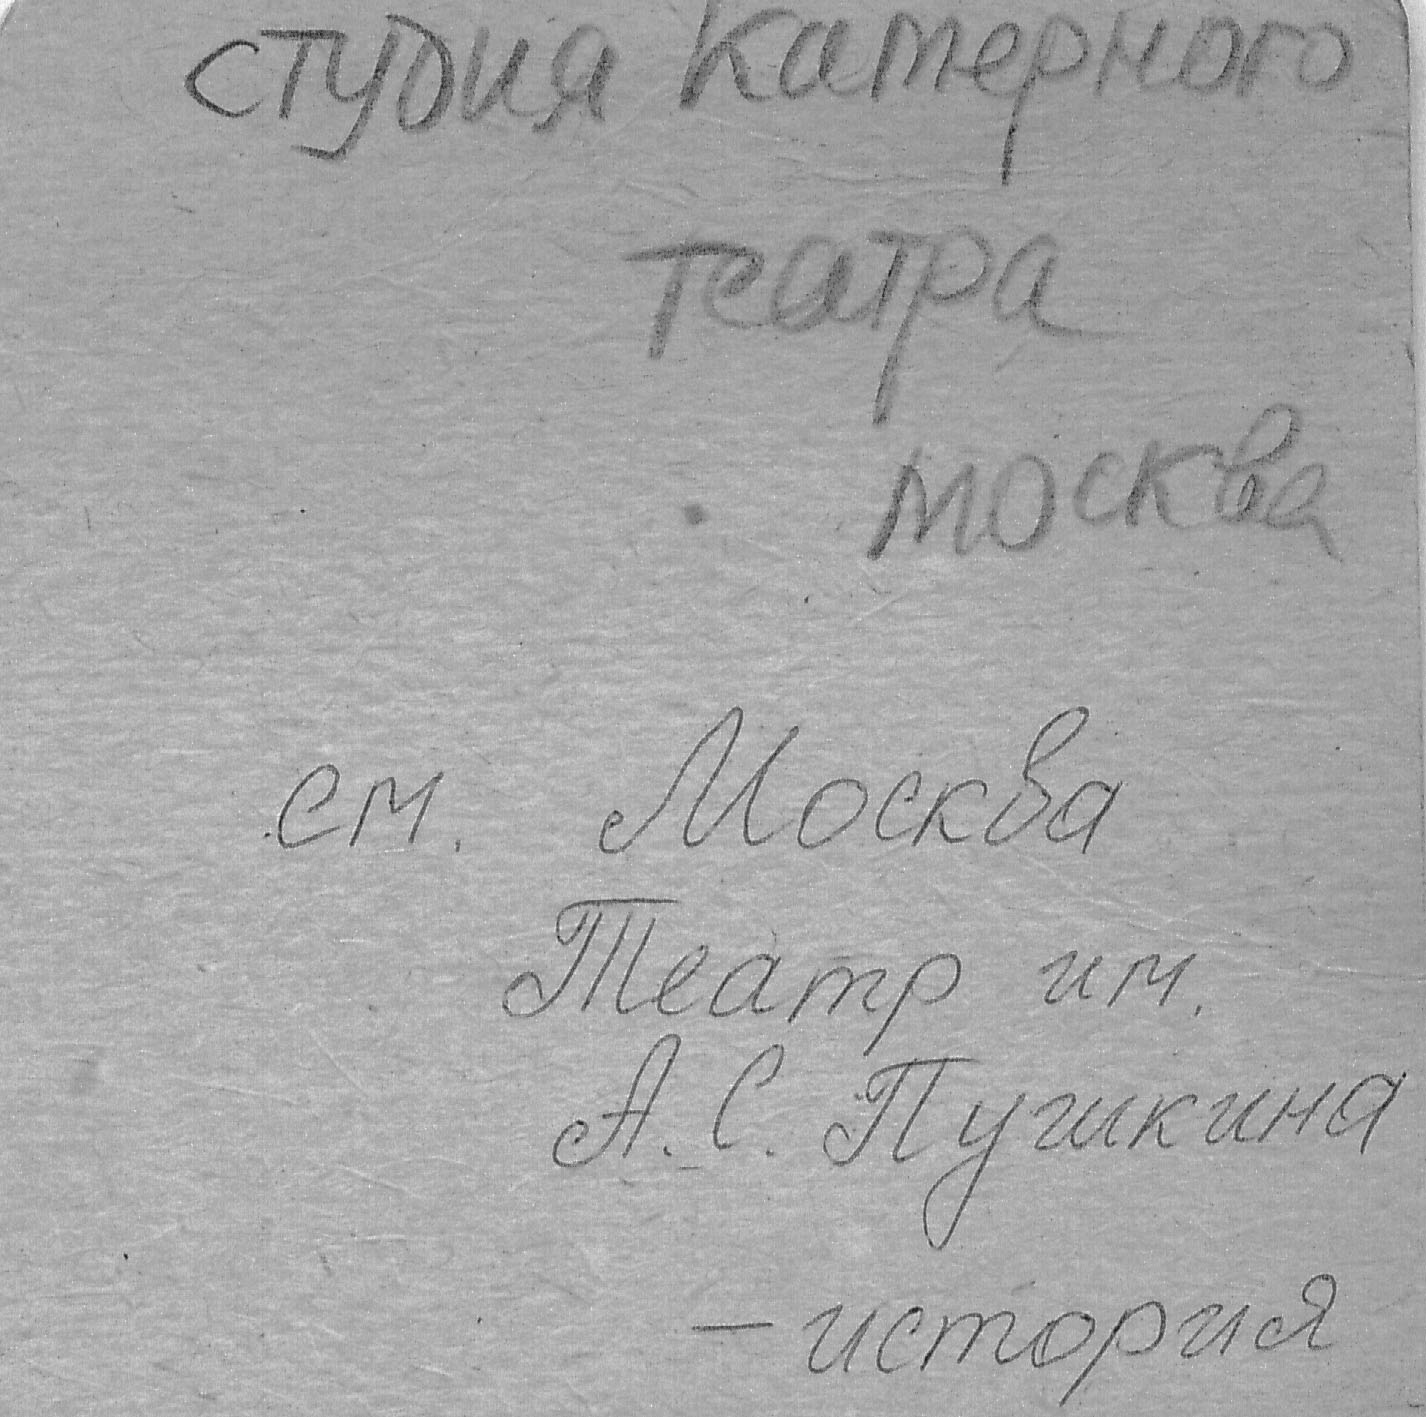 студия Камерного
театра
москва
см. Москва
Театр им.
А.С. Пушкина
– история